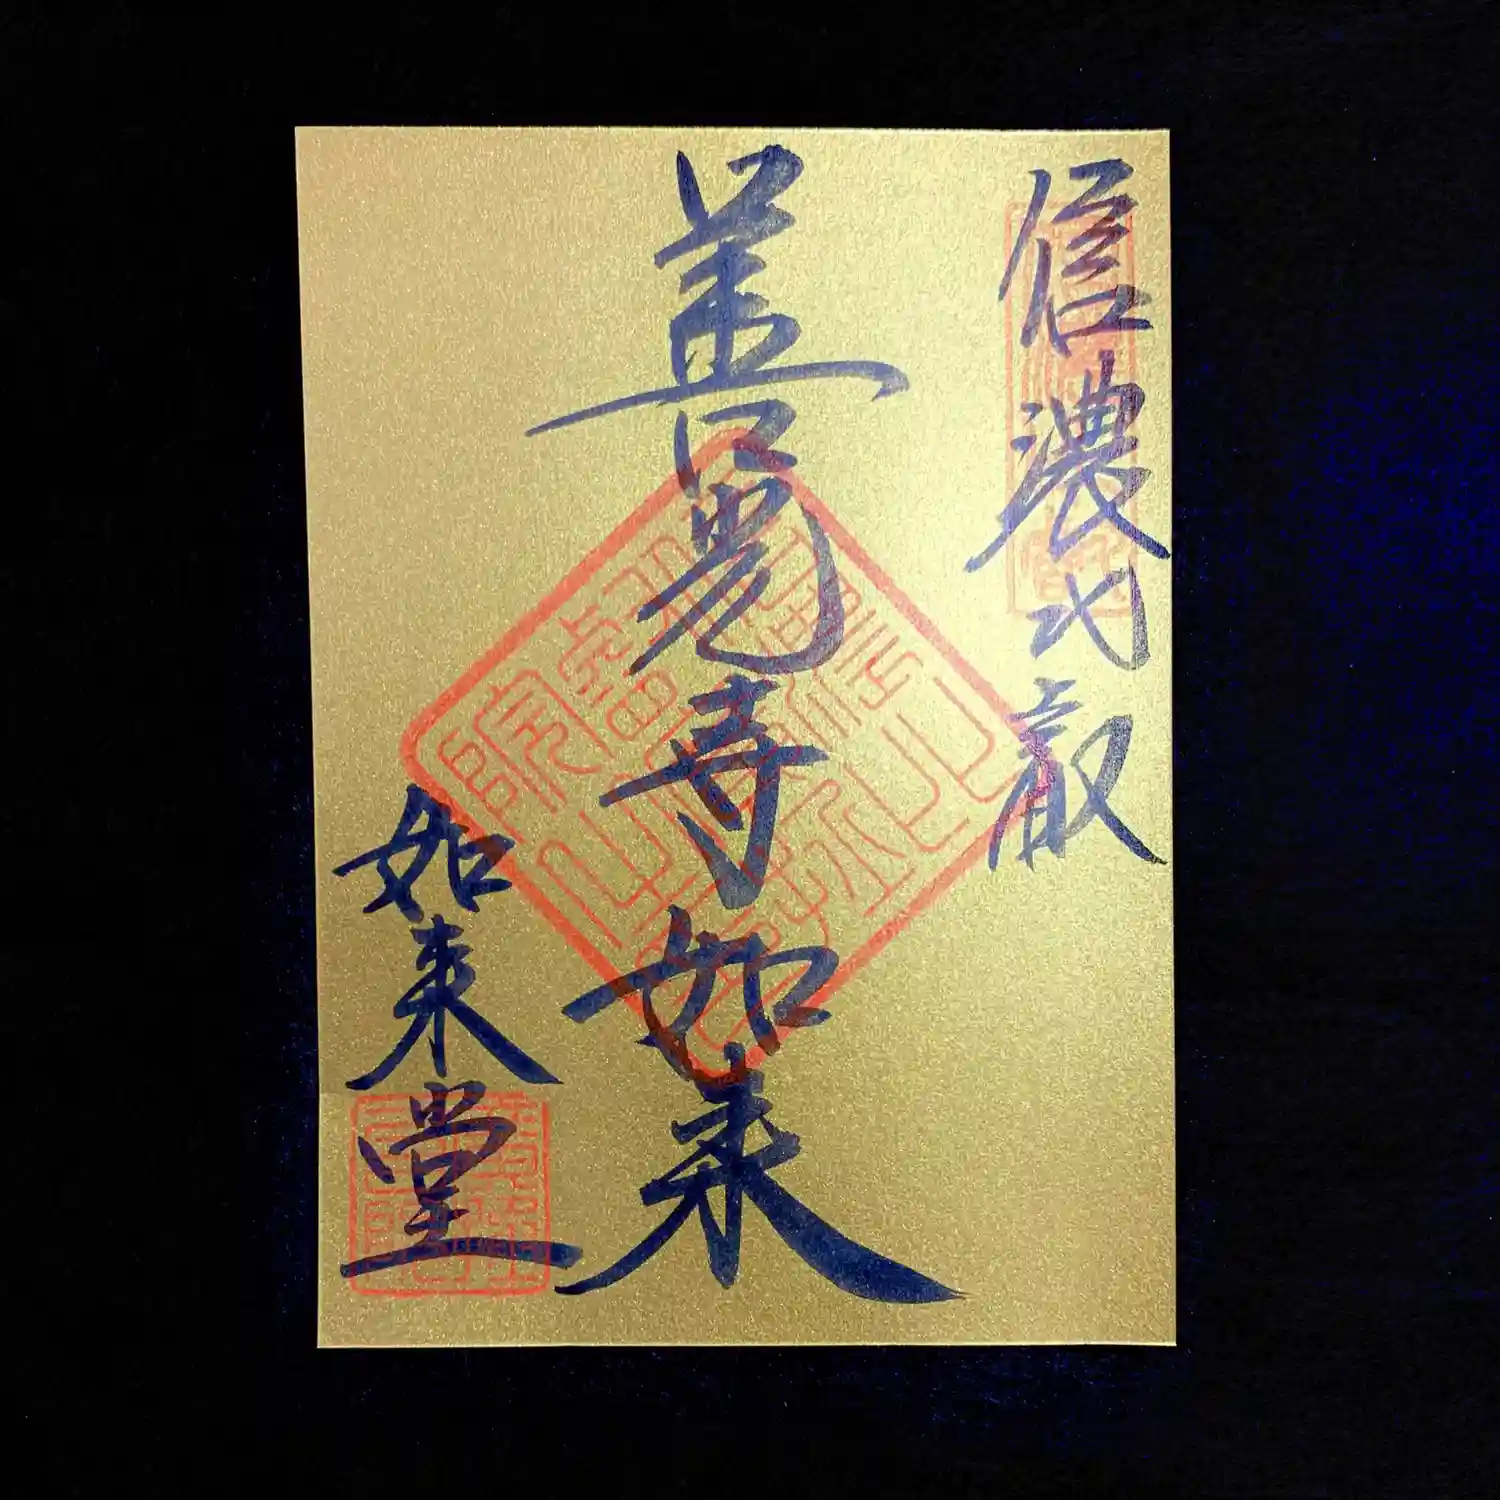 信濃比叡
善光寺如来
如来堂